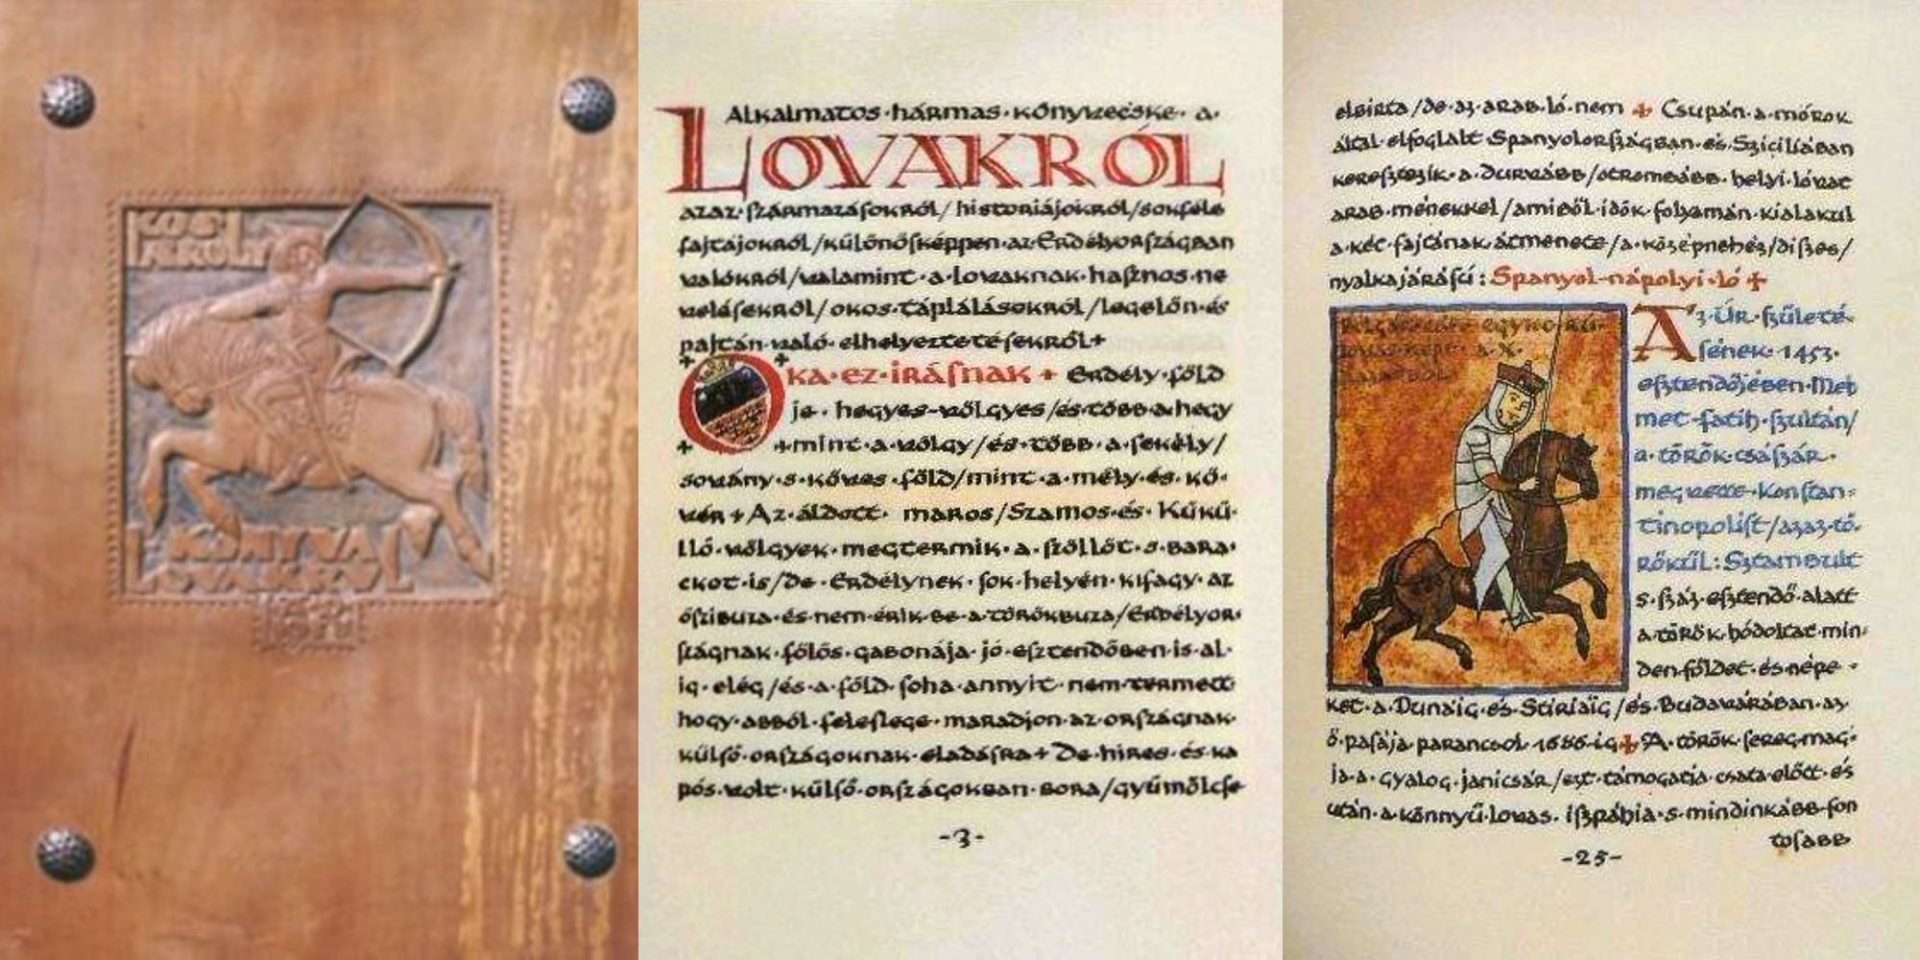 KOS
KÁROLY
KÖNYV A
LOVAKRÓL
Alkalmatos·hármas·könyvecske·a·
LOVAKRÓL
azaz·származásokról/históriájokról/sokféle
fajtájokról/különösképpen·az·Erdélyországban
valókról/valamint·a·lovaknak·hasznos·ne
velésekről/okos·táplálásokról/legelőn·és
pajtán·való·elhelyeztetésekről+
OKA·EZ·ÍRÁSNAK + Erdély·föld
je·hegyes-völgyes/és·több·a·hegy
+mint·a·völgy/és·több·a·sekély/
sovány·s·köves·föld/mint·a·mély·és·kö·
vér+Az·áldott·maros/Szamos·és·Kükü·
llő·völgyek·megtermik·a·szőllőt·s·bara·
ckot·is/de·Erdélynek·sok·helyén·kifagy·az
őszibuza·és·nem·érik·be·a·törökbuza/Erdélyor·
szágnak·fölös·gabonája·jó·esztendőben·is·al·
ig·elég/és·a·föld·soha·annyit·nem·termett
hogy·abból·feleslege·maradjon·az·országnak·
külső·országoknak·eladásra+De·híres·és·ka
pós·volt·külső·országokban·bora/gyümölcse
-3-
elbírta/de·az·arab·ló·nem + Csupán·a·mórok
által·elfoglalt·Spanyolországban·és·Szicíliában
keresztezik·a·durvább/otrombább·helyi·lóvat
arab·ménekkel/amiből·idők·folyamán·kialakul
a·két·fajtának·átmenete/a·középnehéz/díszes/
nyalkajárású: Spanyol-nápolyi·ló +
egykorú
a·X.
Az·Úr·születé·
sének·1453·
esztendőjében·Meh
met-fatih·szultán/
a·török·császár·
megvette·Konstan=
tinopolist/azaz·tö·
rökül: Sztambult
s·száz·esztendő·alatt
a·török·hódoltat·min·
den·földet·és·népe·
ket·a·Dunáig·és·Stiriáig/és·Budavárában·az
ő·pasája·parancsol·1686-ig+A·török·sereg·mag·
ja·a·gyalog·janicsár/ezt·támogatja·csata·előtt·és
után·a·könnyű·lovas·iszpáhia·s·mindinkább·fon
tosabb
-25-